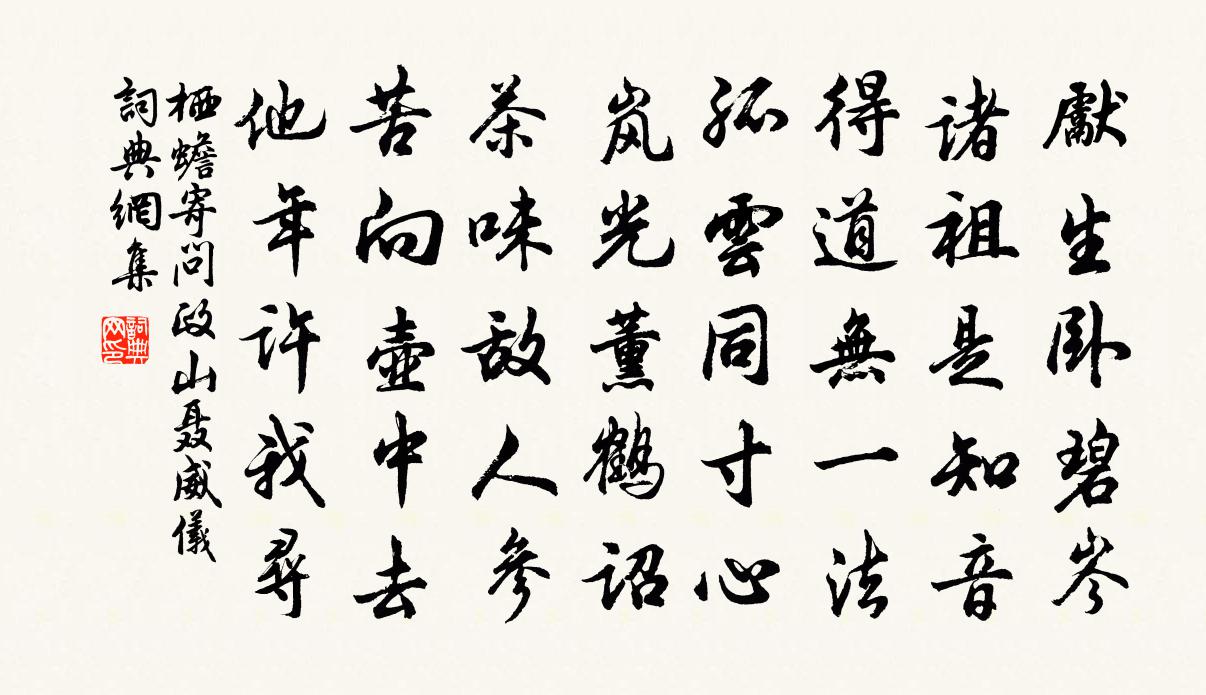 獻生卧碧岑
諸祖是知音
得道無一法
孤雲同寸心
岚光薰鶴詔
茶味敌人參
苦向壺中去
他年許我尋
栖蟾寄問政山聂威儀
詞典網集
詞典网印